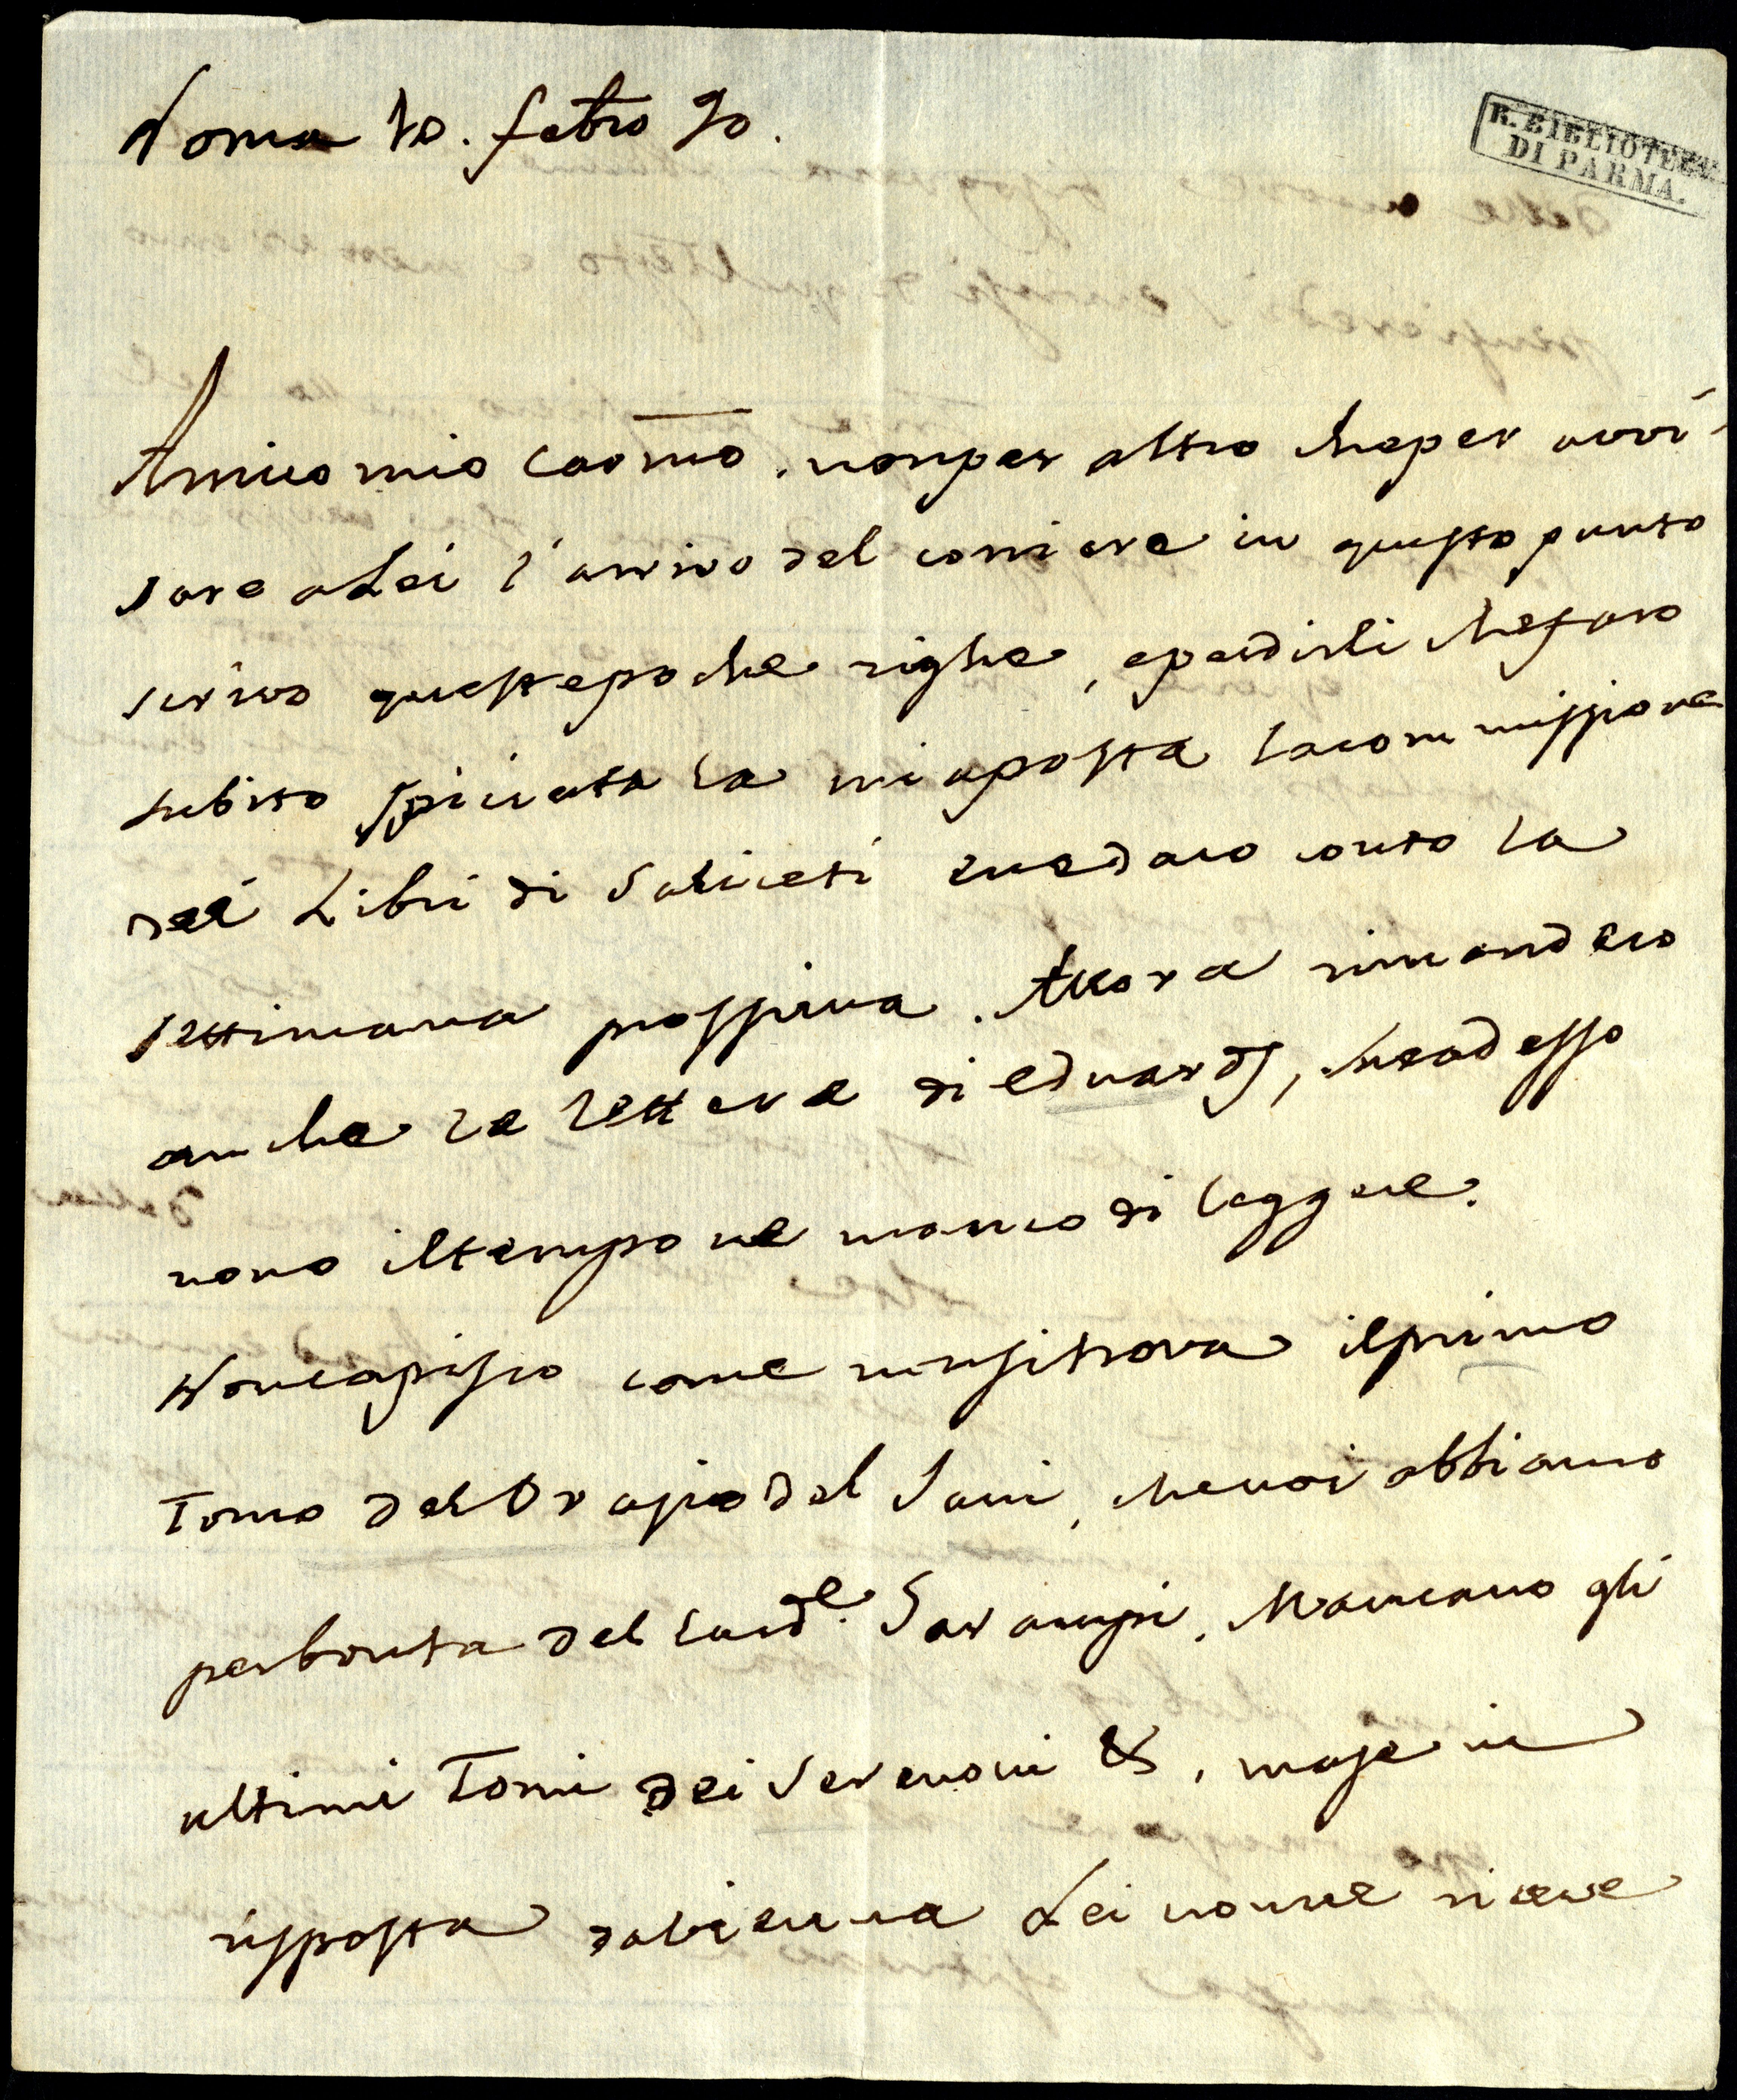 Roma 10. febro 90.
R. BIBLIOTECA
DI PARMA.
Amico mio carmo. non per altro che per avvi-
sare a Lei l'arrivo del corriere in questo punto
scrivo queste poche righe, e per dirli che faro
subito spiciata la mia posta la commissione
dei Libri di Saliceti e ne daro conto la
settimana prossima. Allora rimandero
anche la lettera di Eduards, che adesso
non o il tempo ne manco di leggere.
Non capisco come non si trova il primo
Tomo del Orazio del Sani, che noi abbiamo
per bonta del Card.le Garampi. Mancano gli
ultimi Tomi dei &, ma se in
risposta da Vienna Lei non ne riceve